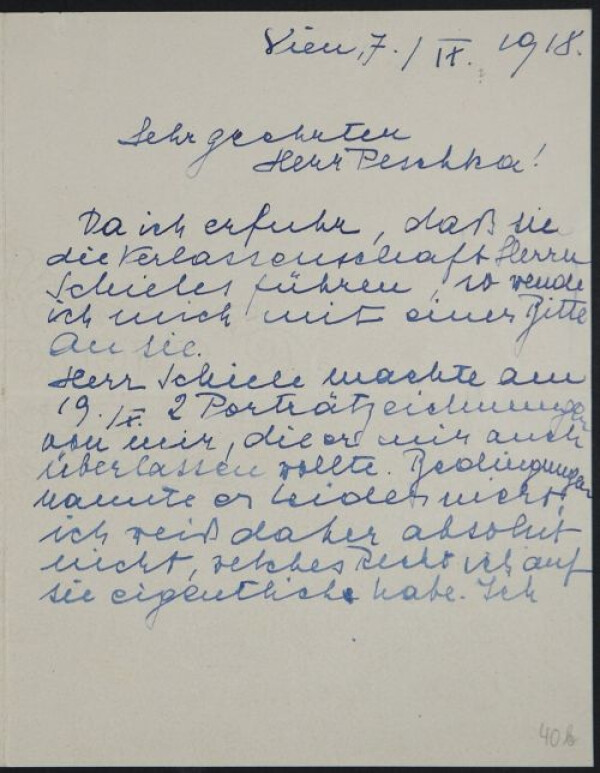 Wien, 7./IX. 1918.
Sehr geehrten
Herr Peschka!
Da ich erfuhr, daß sie
die Verlassenschaft Herrn
Schieles führen, so wende
ich mich mit einer Bitte
an sie.
Herr Schiele machte am
19./IX. 2 Porträtzeichnungen
von mir, die er mir auch
überlassen wollte. Bedingungen
nannte er leider nicht,
ich weiß daher absolut
nicht, welches Recht ich auf
sie eigentlich habe. Ich
40b